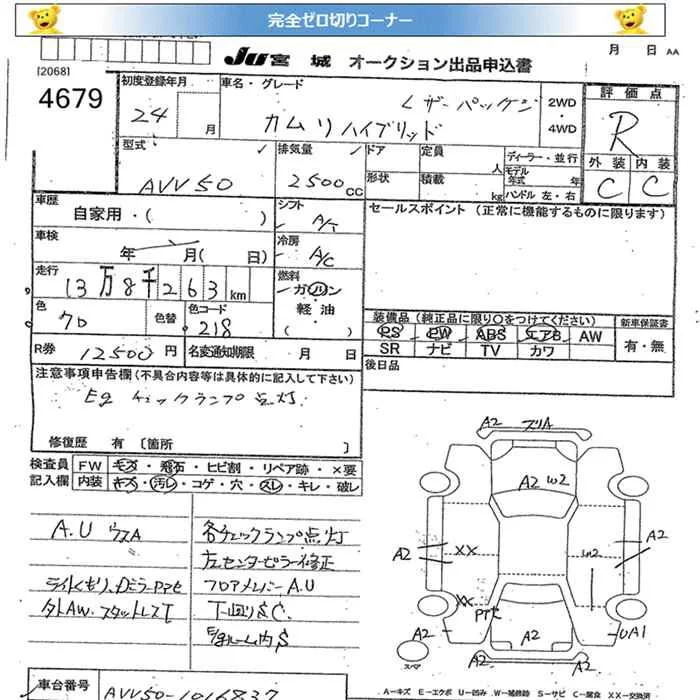 完全ゼロ切りコーナー
JU宮城 オークション出品申込書
月 日 AA
[2068]
4679
初度登録年月
24 月
車名・グレード
レザーパッケジ
カムリハイブリッド
2WD
・
4WD
評価点
R
外装 内装
C C
型式
AVV50
排気量
2500cc
ドア 定員 人
形状 積載 kg
ディーラー・並行
モデル年式 年
ハンドル 左・右
車歴
自家用・( )
シフト
A/T
セールスポイント(正常に機能するものに限ります)
車検
年 月( 日)
冷房
A/C
走行
13万8千263km
燃料
ガソリン
軽油
( )
色
70
色替
色コード
218
装備品(純正品に限り○をつけてください)
新車保証書
PS PW ABS エアB AW
SR ナビ TV カワ
有・無
R券 12500円
名変通知期限 月 日
後日品
注意事項申告欄(不具合内容等は具体的に記入して下さい)
Eg チェックランプ点灯
修復歴 有 〔箇所 〕
検査員記入欄
FW キズ・飛石・ヒビ割・リペア跡・×要
内装 キズ・汚レ・コゲ・穴・スレ・キレ・破レ
A.U ウスA
各チェックランプ点灯
左センターピラー修正
ライトくもり、Dミラー
フロアメンバーA.U
外AW. スタットレス
下回りS C.
Egルーム内S
A2 スリA
A2 W2
A2
XX
W2
A2
XX
A2
A2
UA1
A2
スペア
車台番号
AVV50-1016837
A-キズ E-エクボ U-凹み W-補修跡 S-サビ C-腐食 XX-交換済